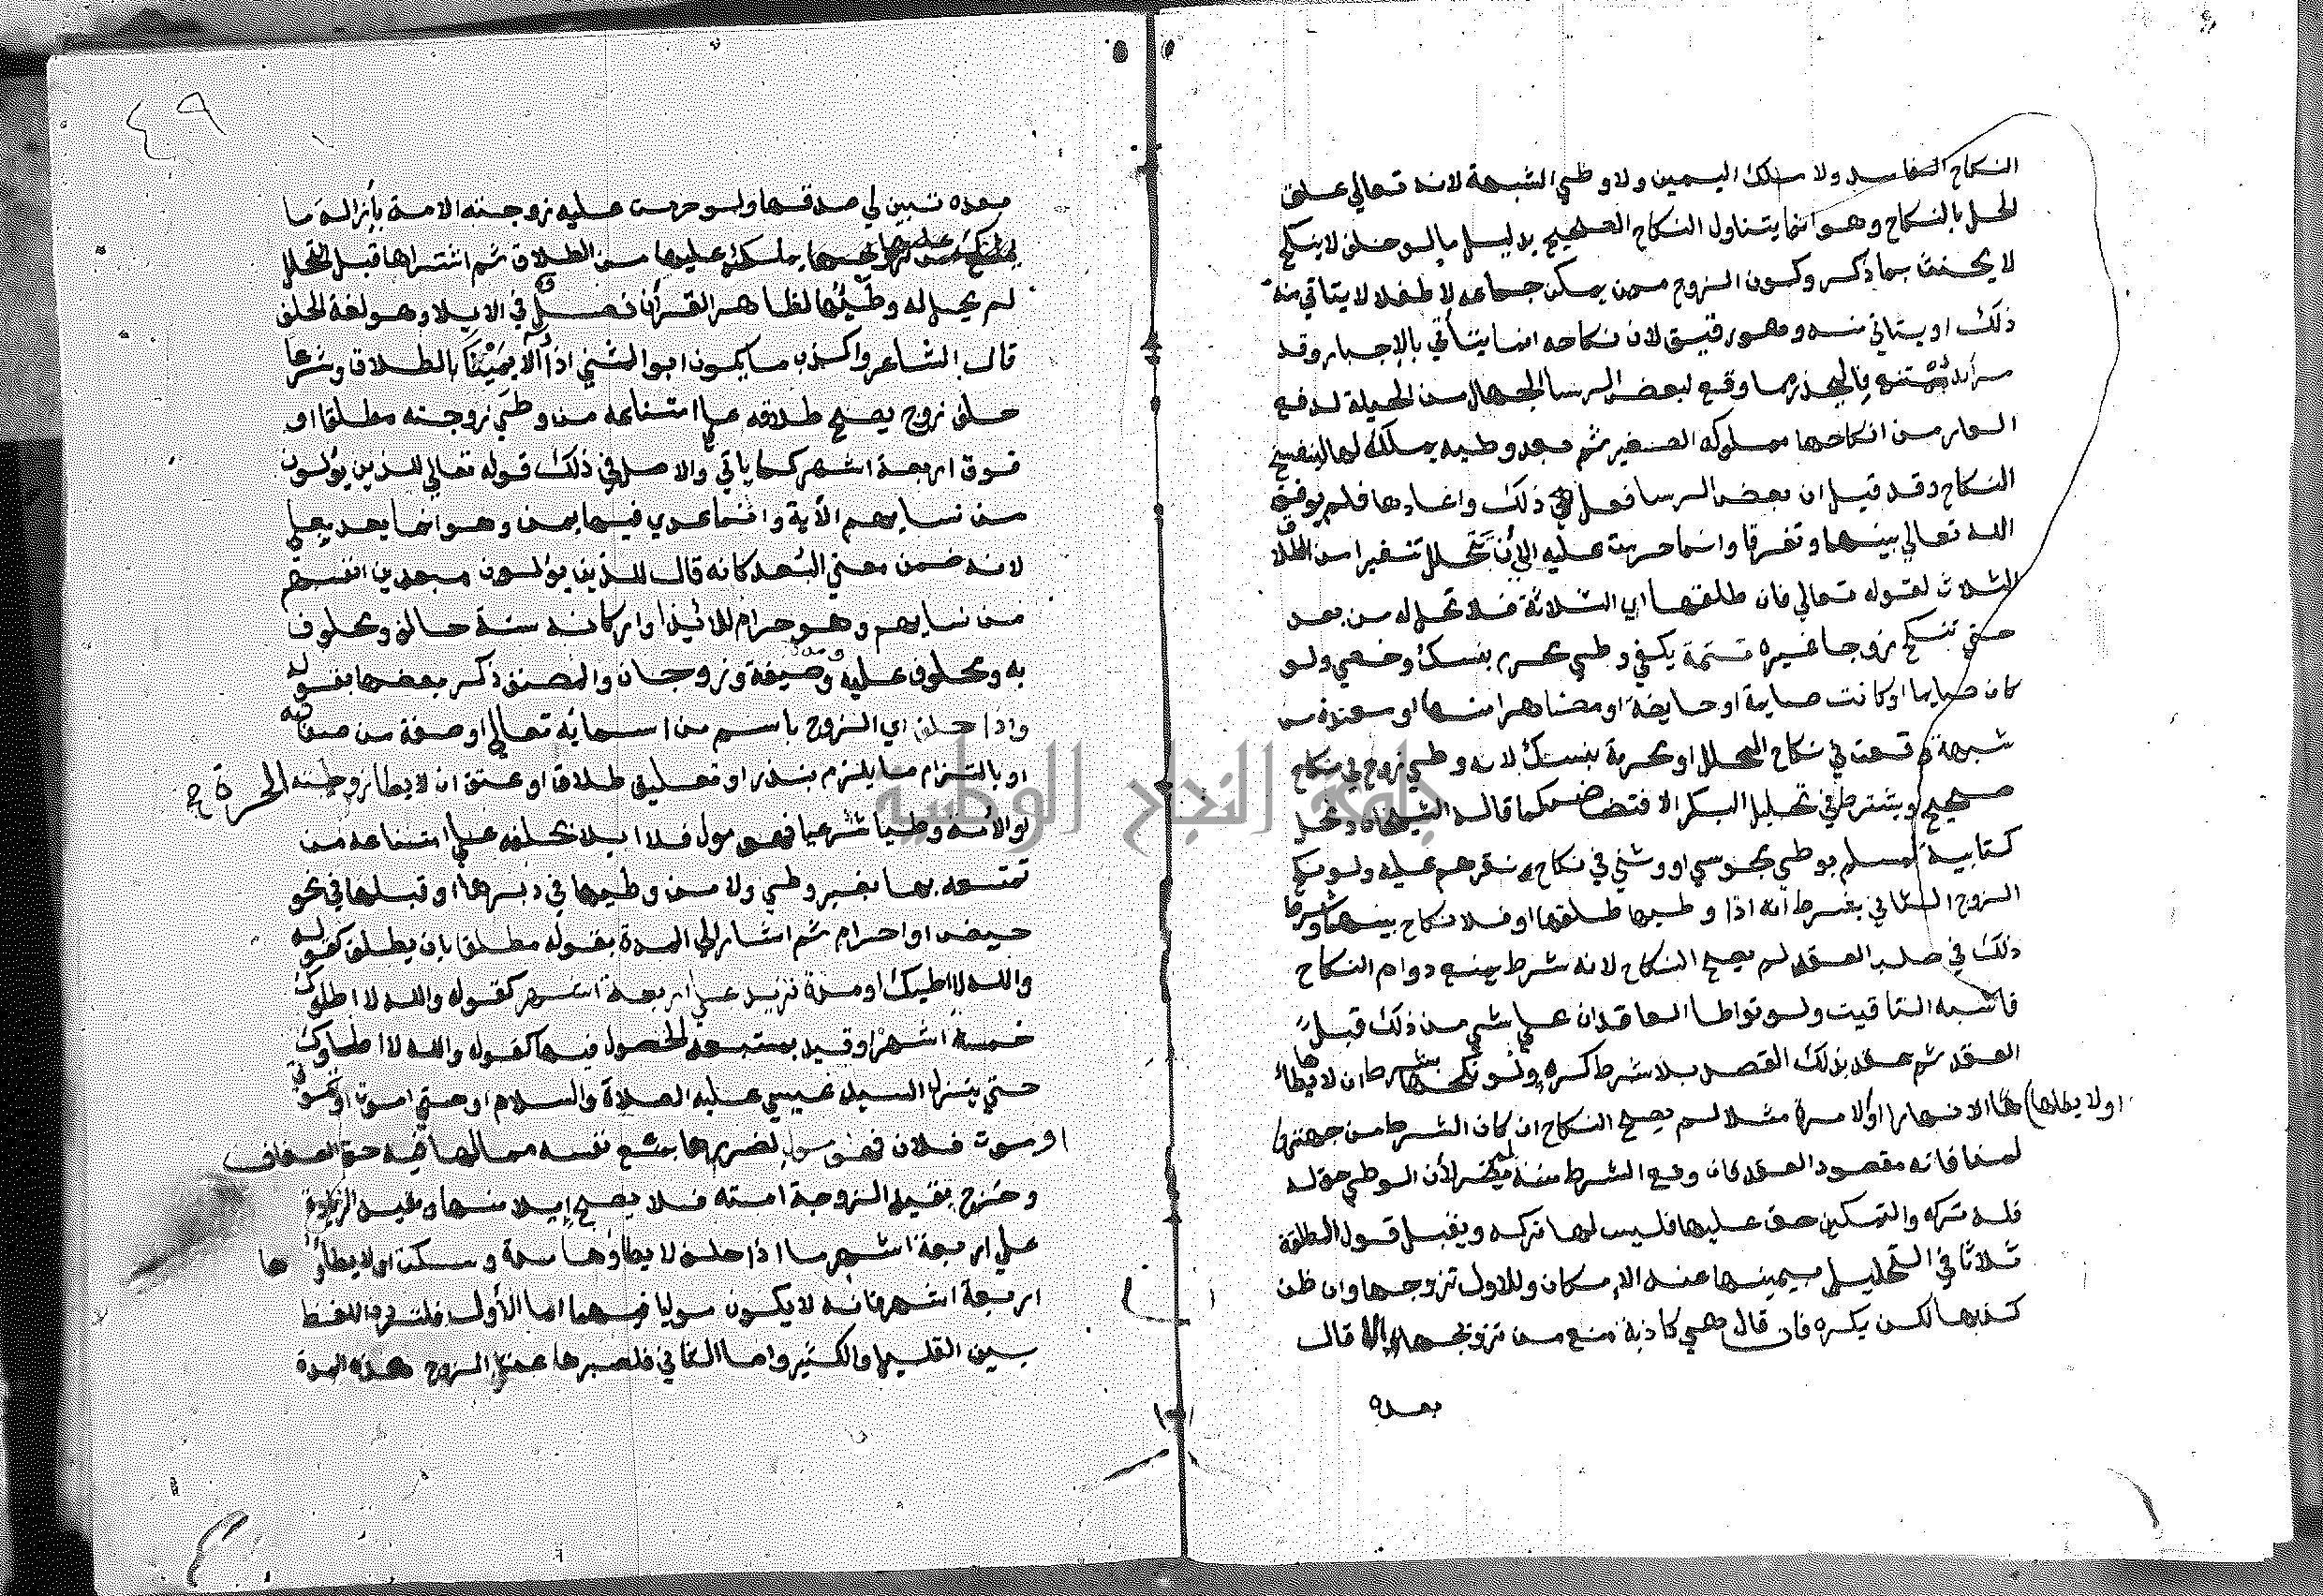 النكاح الفاسد ولا ملك اليمين ولا وطي الشبهة لانه تعالي علق
الحل بالنكاح وهو انما يتناول النكاح الصحيح بدليل ما لو حلف لا ينكح
لا يحنث بما ذكر وكون الزوج ممن يمكن جماعه لا طفلا لا يتاتي منه
ذلك او يتاتي منه وهو رقيق لان نكاحه انما يتأتي بالاجبار وقد
مر انه ممتنع فاليحذر مما وقع لبعض الرسا الجهال من الحيلة لدفع
العار من انكاحها مملوكه الصغير ثم بعد وطيه يملكه لها لينفسخ
النكاح وقد قيل ان بعض الرسا فعل ذلك واعادها فلم يوفق
الله تعالي بينهما وتفرقا وانما حرمت عليه الي أن تتحلل تنفيرا من الطلاق
الثلاث لقوله تعالي فان طلقها اي الثالثة فلا تحل له من بعد
حتي تنكح زوجا غيره تتمة يكفي وطي محرم بنسك وخصي ولو
كان صايما او كانت صايمة او حايضة او مظاهرا منها او معتدة من
شبهة وقعت في نكاح المحلل او محرمة بنسك لانه وطي زوج في نكاح
صحيح ويشترط في تحليل البكر الافتضاض كما قاله الشيخان وتحل
كتابية لمسلم بوطي مجوسي او وثني في نكاح نقرهم عليه ولو نكح
الزوج الثاني بشرط أنه اذا وطيها طلقها او فلا نكاح بينهما وشرط
ذلك في صلب العقد لم يصح النكاح لانه شرط يمنع دوام النكاح
فاشبه التاقيت ولو تواطا العاقدان علي شي من ذلك قبل
العقد ثم عقد بذلك القصد بلا شرط كره ولو نكحها بشرط ان لا يطأها
او لا يطاها الا نهارا او لا مرة مثلا لم يصح النكاح ان كان الشرط من جهتها
لمنافاته مقصود العقد فان وقع الشرط منه لم يضر لأن الوطي حق له
فله تركه والتمكين حق عليها فليس لها تركه ويقبل قول المطلقة
ثلاثا في التحليل بيمينها عند الامكان وللاول تزوجها وان ظن
كذبها لكن يكره فان قال هي كاذبة منع من تزوجها الا قال
بعده
٤٩
بعده تبين لي صدقها ولو حرمت عليه زوجته الامة بأزالة ما
يملكه عليها من الطلاق ثم اشتراها قبل التحلل
لم يحل له وطئها لظاهر القرأن فصل في الايلا وهو لغة الحلف
قال الشاعر واكذب ما يكون ابو المثني اذا آلا يمينا بالطلاق وشرعا
حلف زوج يصح طلاقه علي امتناعه من وطي زوجته مطلقا او
فوق اربعة اشهر كما ياتي والاصل في ذلك قوله تعالي للذين يؤلون
من نسايهم الأية وانما عدي فيها بمن وهو انما يعدي بعلي
لانه ضمن معني البعد كانه قال للذين يؤلون مبعدين انفسهم
من نسايهم وهو حرام للايذا واركانه ستة حالف ومحلوف
به ومحلوف عليه ومدة وصيغة وزوجان والمصنف ذكر بعضها بقوله
واذا حلف اي الزوج باسم من اسمايه تعالي او صفة من صفاته
او بالتزام ما يلزم بنذر او تعليق طلاق او عتق ان لا يطا زوجته الحرة
او الامة وطيا شرعيا فهو مول فلا ايلا بحلفه علي امتناعه من
تمتعه بها بغير وطي ولا من وطيها في دبرها او قبلها في نحو
حيض او احرام ثم اشار الي المدة بقوله مطلقا بان يطلق كقوله
والله لا اطيك او مدة تزيد علي اربعة اشهر كقوله والله لا اطاوك
خمسة اشهر او قيد بمستبعد الحصول فيها كقوله والله لا اطاوك
حتي ينزل السيد عيسي عليه الصلاة والسلام او حتي اموت او تموتي
او موت فلان فهو مول لضررها بمنع نفسه مما لها فيه حق العفاف
وخرج بقيد الزوجة امته فلا يصح ايلا منها وبقيد الزيادة
علي اربعة اشهر ما اذا حلف لا يطاؤها مدة وسكت او لا يطاؤها
اربعة اشهر فانه لا يكون موليا فيهما اما الأول فلتردد اللفظ
بين القليل والكثير واما الثاني فلصبرها عن الزوج هذه المدة
جامعة النجاح الوطنية